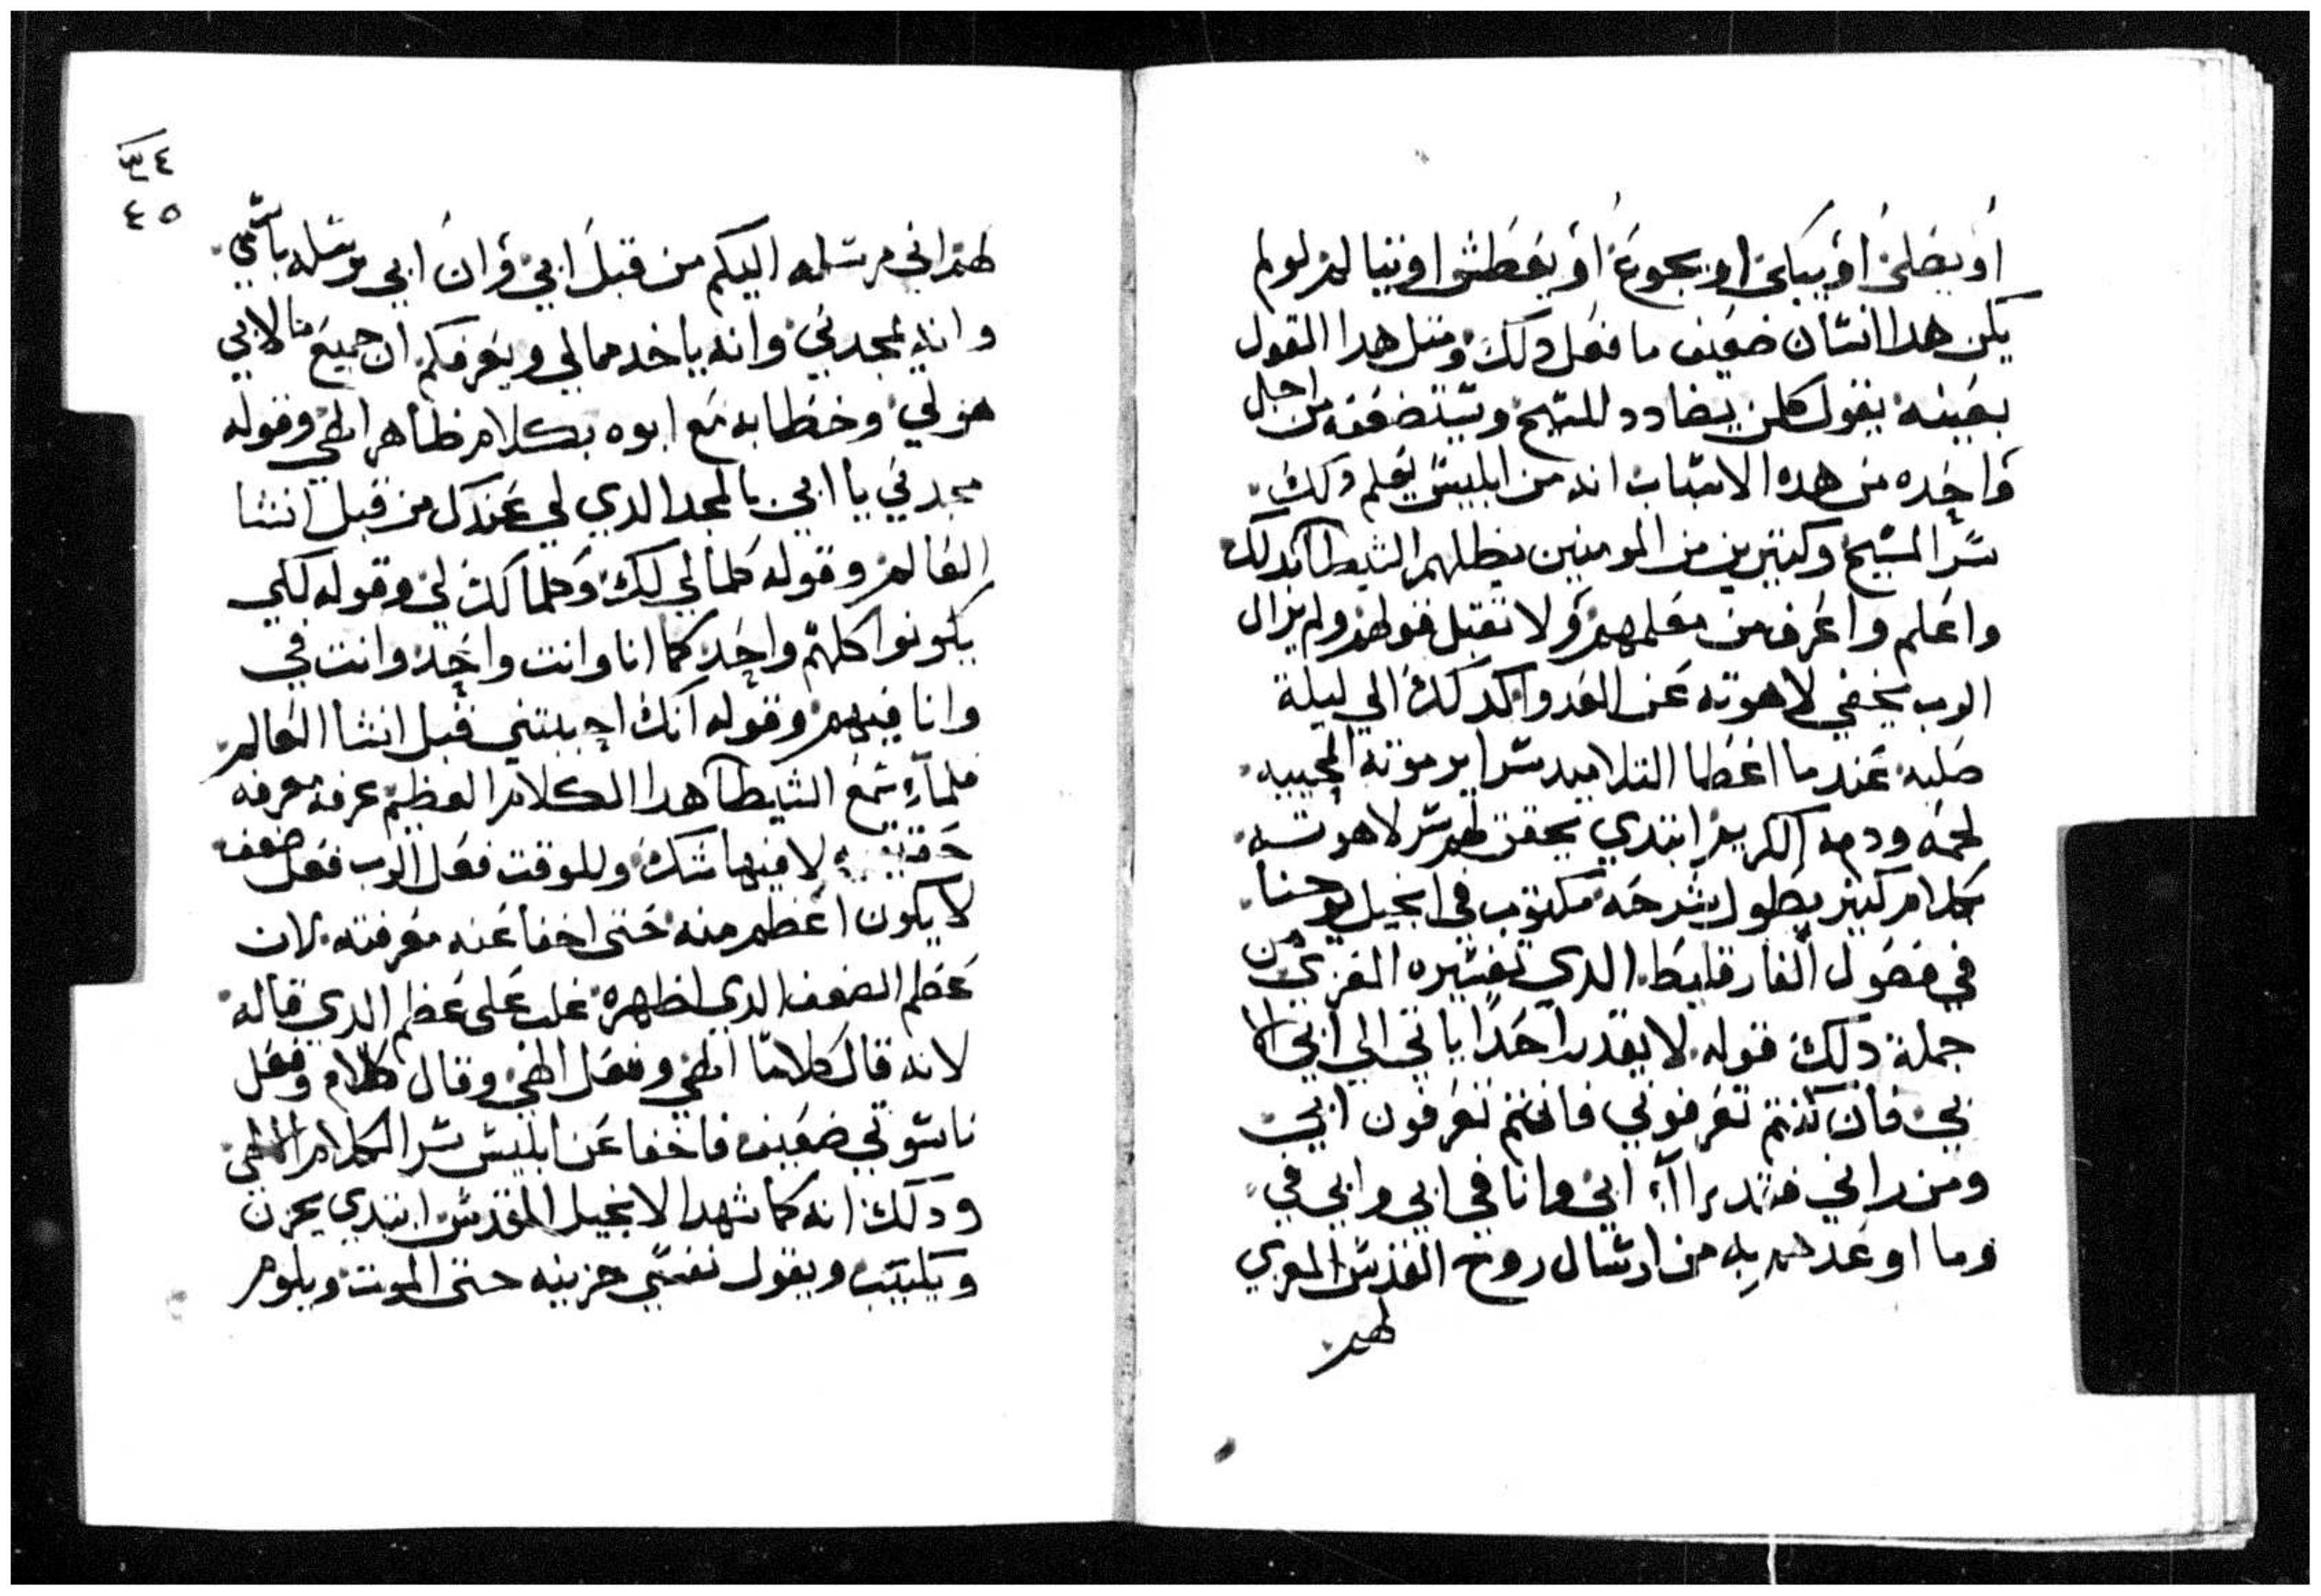 او يصلي او يبكي او يجوع او يعطش او يتالم لو لم
يكن هدا انسان ضعيف ما فعل دلك ومتل هدا القول
بعينه يقول كلمن يضادد للمسيح ويستضعفه من اجل
واحده من هده الاسباب انه من ابليس يعلم دلك
سر المسيح وكتيرين من المومنين يظلهم الشيطان بدلك
واعلم واعرف من معلمهم ولا تقبل قولهم ولم يزال
الرب يخفي لاهوته عن العدو الى ليلة
صلبه عندما اعطا التلاميد سراير موته المحييه
لحمه ودمه الكريم ابتدي يحقق لهم سر لاهوته
بكلام كتير يطول شرحه مكتوب في انجيل يوحنا
في فصول الفارقليط الدي تفسيره المعزي من
جملة دلك قوله لا يقدر احدا ياتي الي ابي الا
بي فان كنتم تعرفوني فانتم تعرفون ابي
ومن راني فقد راا ابي وانا في ابي وابي في
وما اوعدهم به من ارسال روح القدس المعزي
لهم
٣٤
٤٥
لهم اني مرسله اليكم من قبل ابي وان ابي يرسله باسمي
وانه يمجدني وانه ياخد مما لي ويعرفكم ان جميع ما لابي
هو لي وخطابه مع ابوه بكلام ظاهر الهي وقوله
مجدني يا ابي بالمجد الدي لي عندك من قبل انشا
العالم وقوله كلما لي لك وكلما لك لي وقوله لكي
يكونوا كلهم واحد كما انا وانت واحد وانت في
وانا فيهم وقوله انك احببتني قبل انشا العالم
فلما سمع الشيطان هدا الكلام العظيم عرفه معرفه
حقيقيه لا فيها شك وللوقت فعل الرب فعل ضعف
لا يكون اعظم منه حتى اخفا عنه معرفته لان
عظم الضعف الدي اظهره غلب على عظم الدي قاله
لانه قال كلاما الهي وفعل الهي وقال كلام وفعل
ناسوتي ضعيف فاخفا عن ابليس سر الكلام الالهي
ودلك انه كما شهد الانجيل المقدس ابتدي يحزن
ويكييب ويقول نفسي حزينه حتى الموت ويلوم